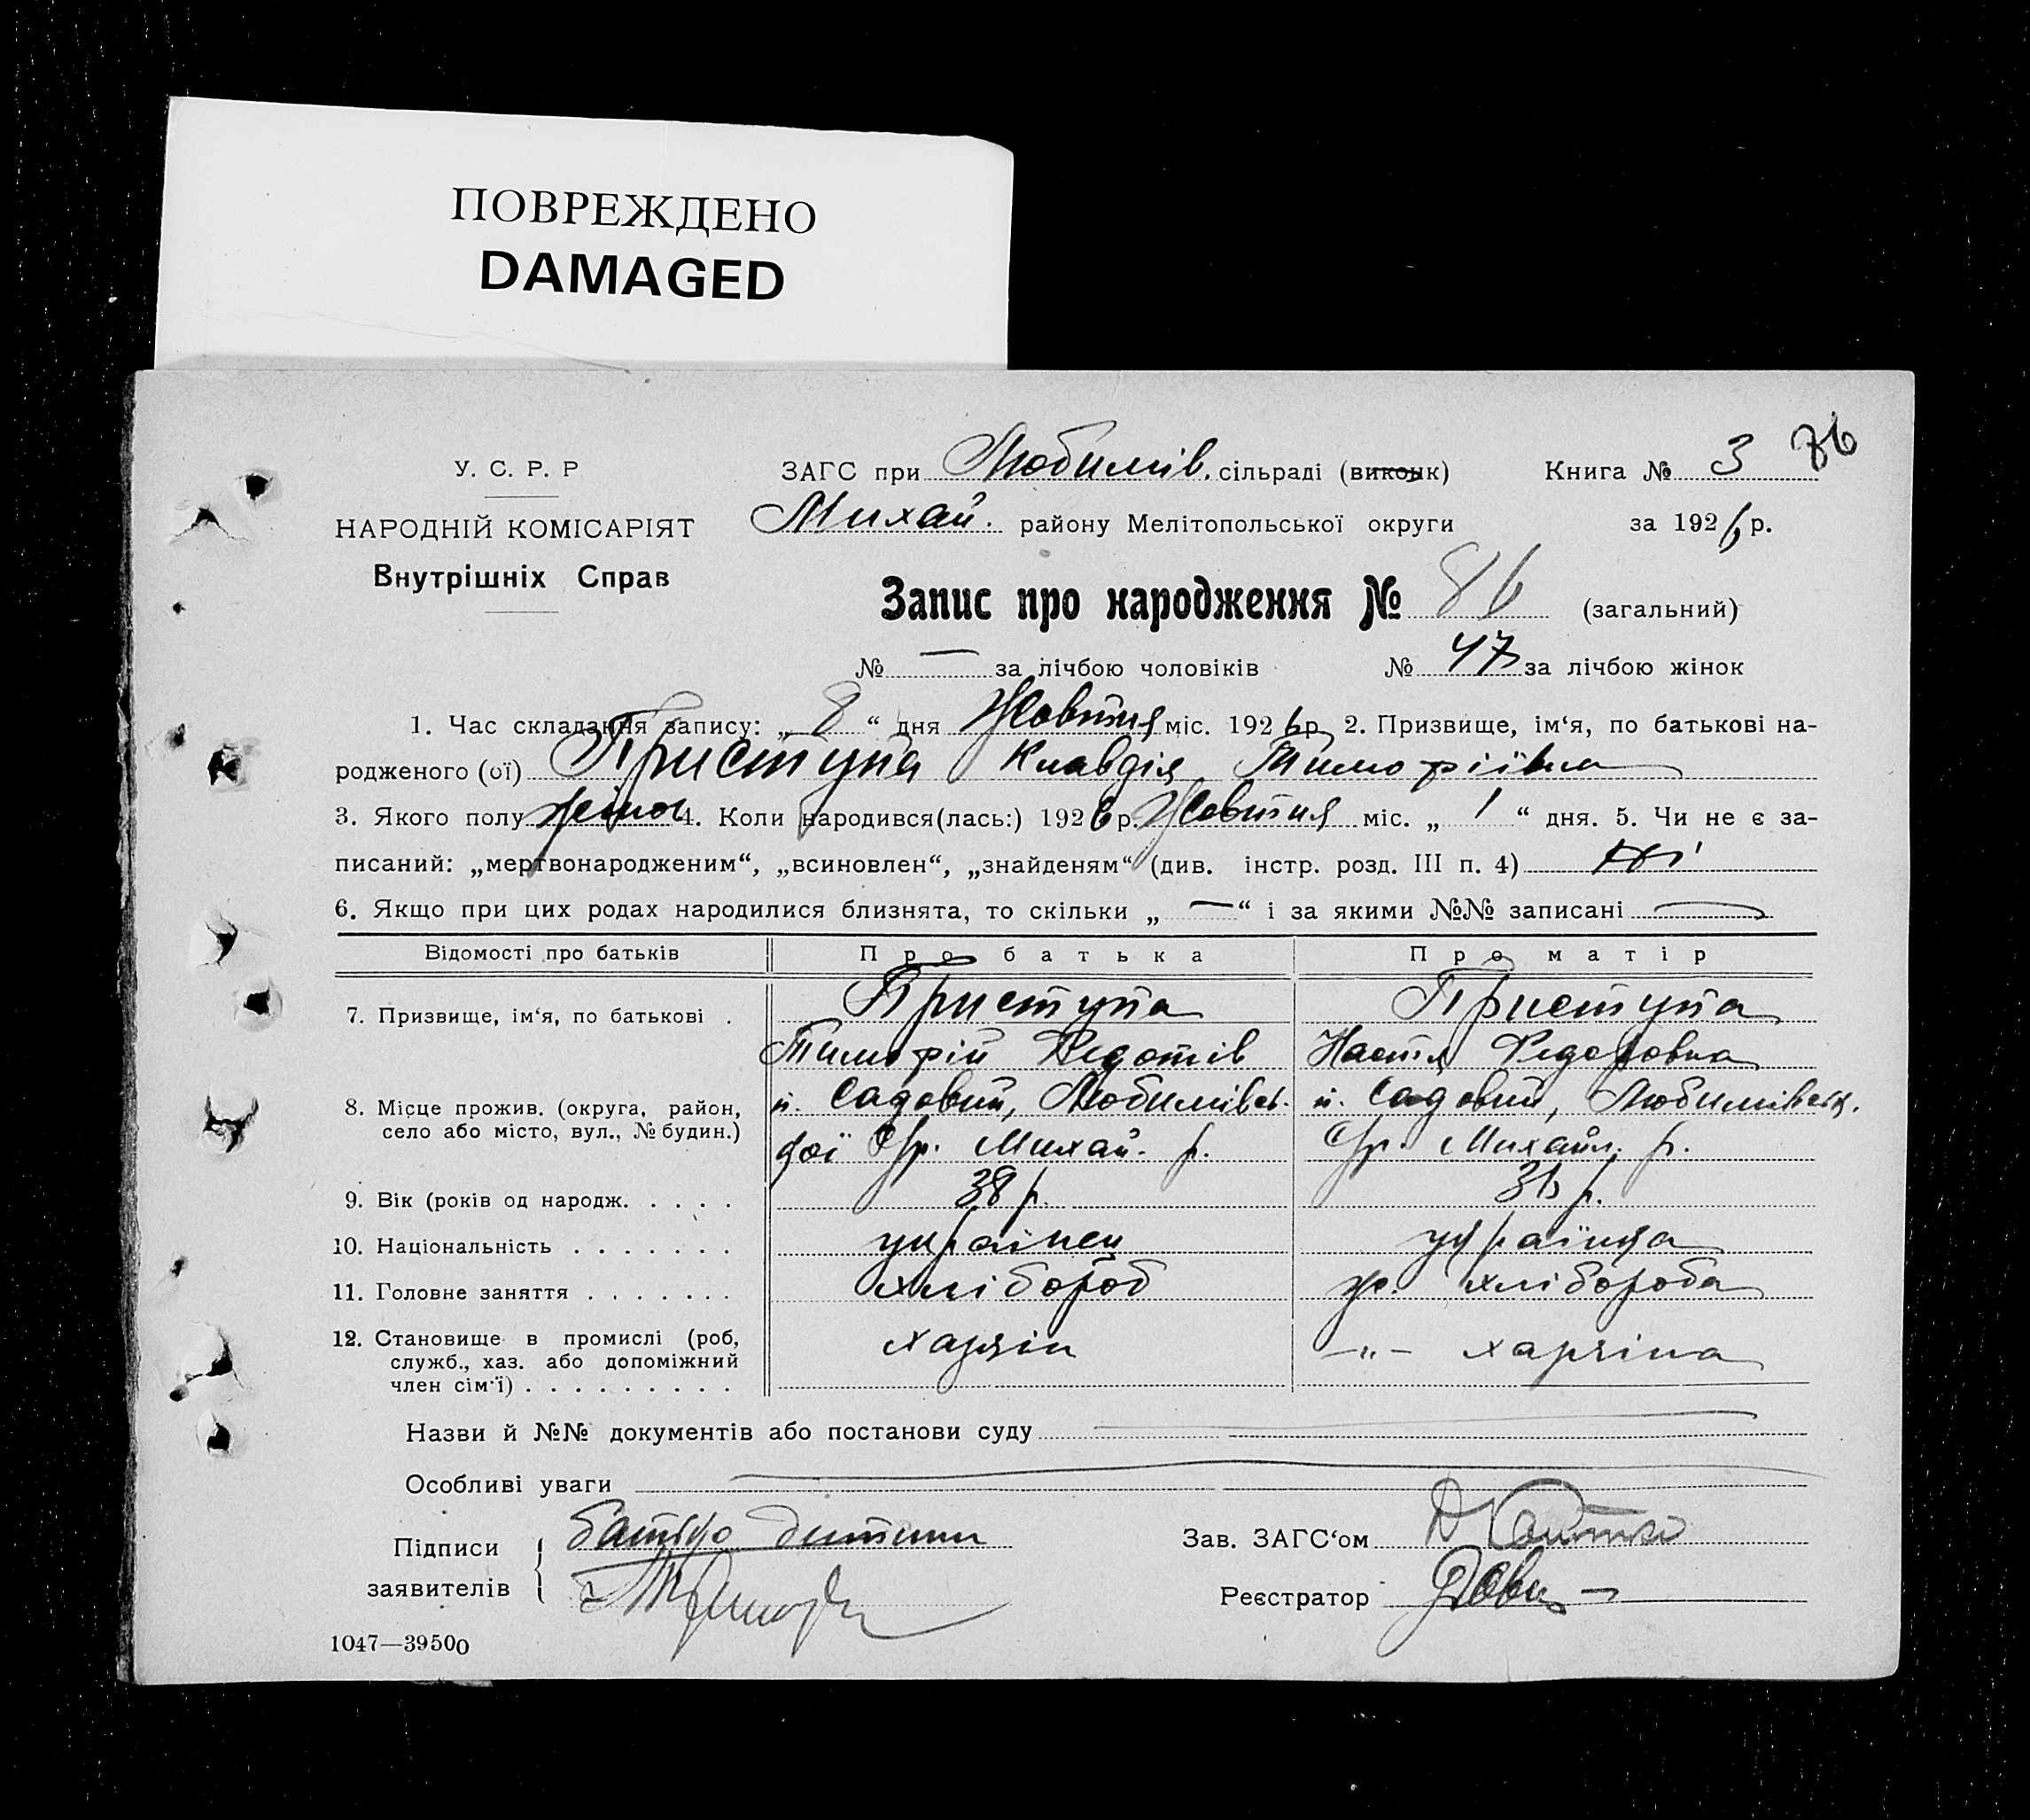 ПОВРЕЖДЕНО
DAMAGED
У. С. Р. Р
НАРОДНІЙ КОМІСАРІЯТ
Внутрішніх Справ
ЗАГС при Любимів. сільраді (виконк) Книга № 3 86
Михай. району Мелітопольської округи за 1926 р.
Запис про народження № 86 (загальний)
№ — за лічбою чоловіків № 47 за лічбою жінок
1. Час складання запису: „ 8 “ дня Жовтня міс. 1926 р. 2. Призвище, ім‘я, по батькові на-
родженого (ої) Приступа Клавдія Тимофіївна
3. Якого полу жіноч 4. Коли народився(лась:) 1926 р. Жовтня міс. „ 1 “ дня. 5. Чи не є за-
писаний: „мертвонародженим“, „всиновлен“, „знайденям“ (див. інстр. розд. III п. 4) ні
6. Якщо при цих родах народилися близнята, то скільки „ — “ і за якими №№ записані —
Відомості про батьків Про батька Про матір
7. Призвище, ім‘я, по батькові . Приступа Приступа
Тимофій Федотів Настя Федоровна
8. Місце прожив. (округа, район, село або місто, вул., № будин.) п. Садовий, Любимівсь- п. Садовий, Любимівськ.
кої с/р. Михай. р. с/р. Михайл. р.
9. Вік (років од народж. . . . . 38 р. 36 р.
10. Національність . . . . . . . українец українка
11. Головне заняття . . . . . . . хлібороб ж. хлібороба
12. Становище в промислі (роб, служб., хаз. або допоміжний член сім‘ї) . . . . . . . . . хазяін -„- хазяіна
Назви й №№ документів або постанови суду
Особливі уваги
Підписи заявителів батько дитини
Зав. ЗАГС‘ом
Реєстратор
1047—39500